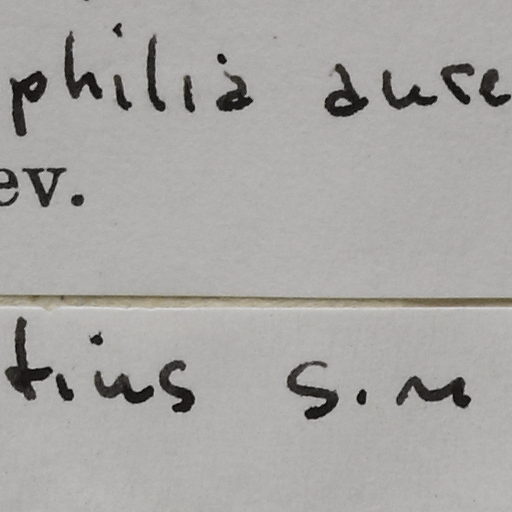 philia aure
ev.
tius s.m